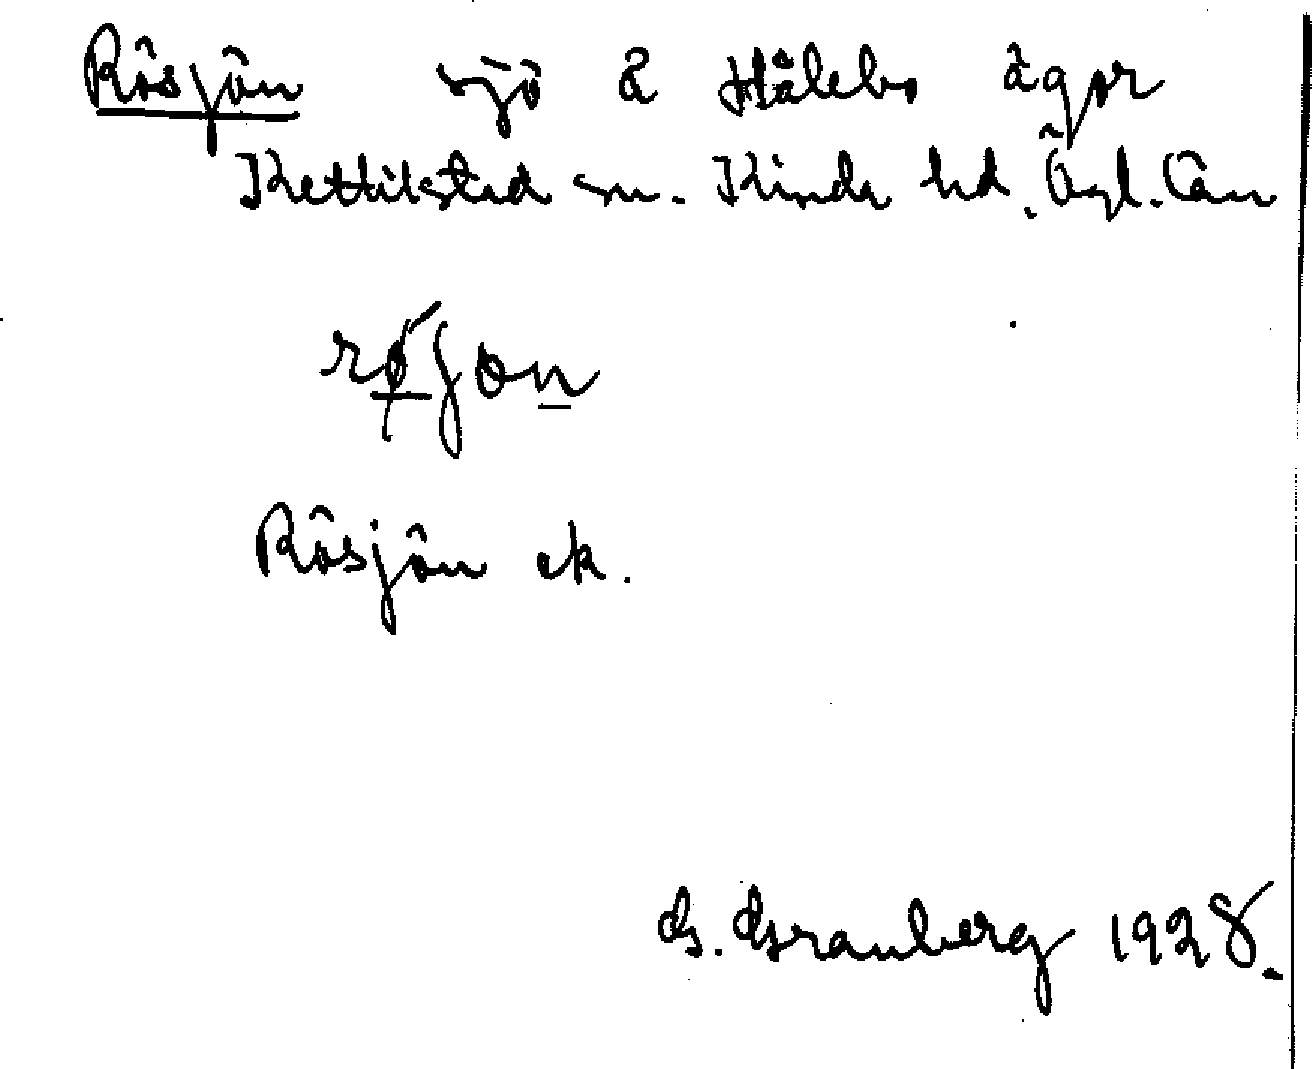 Rösjön sjö å Hålebo ägor
Kettilstad sn. Kinda hd. Ögl. län
Rösjön ek.
G. Granberg 1928.